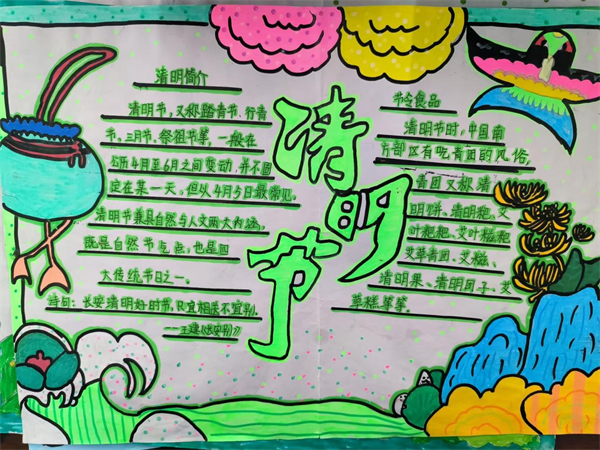 清明简介
清明节,又称踏青节、行青
节、三月节、祭祖节等,一般在
公历4月至6月之间变动,并不固
定在某一天,但以4月5日最常见。
清明节兼具自然与人文两大内涵,
既是自然节气点,也是四
大传统节日之一。
诗句:长安清明好时节,只宜相送不宜别。
——王建《长安别》
清明节
节令食品
清明节时,中国南
方部区有吃青团的风俗,
青团又称清
明饼、清明粑、艾
叶粑粑、艾叶糍粑
艾草青团、艾糍、
清明果、清明团子、艾
草糕等等。